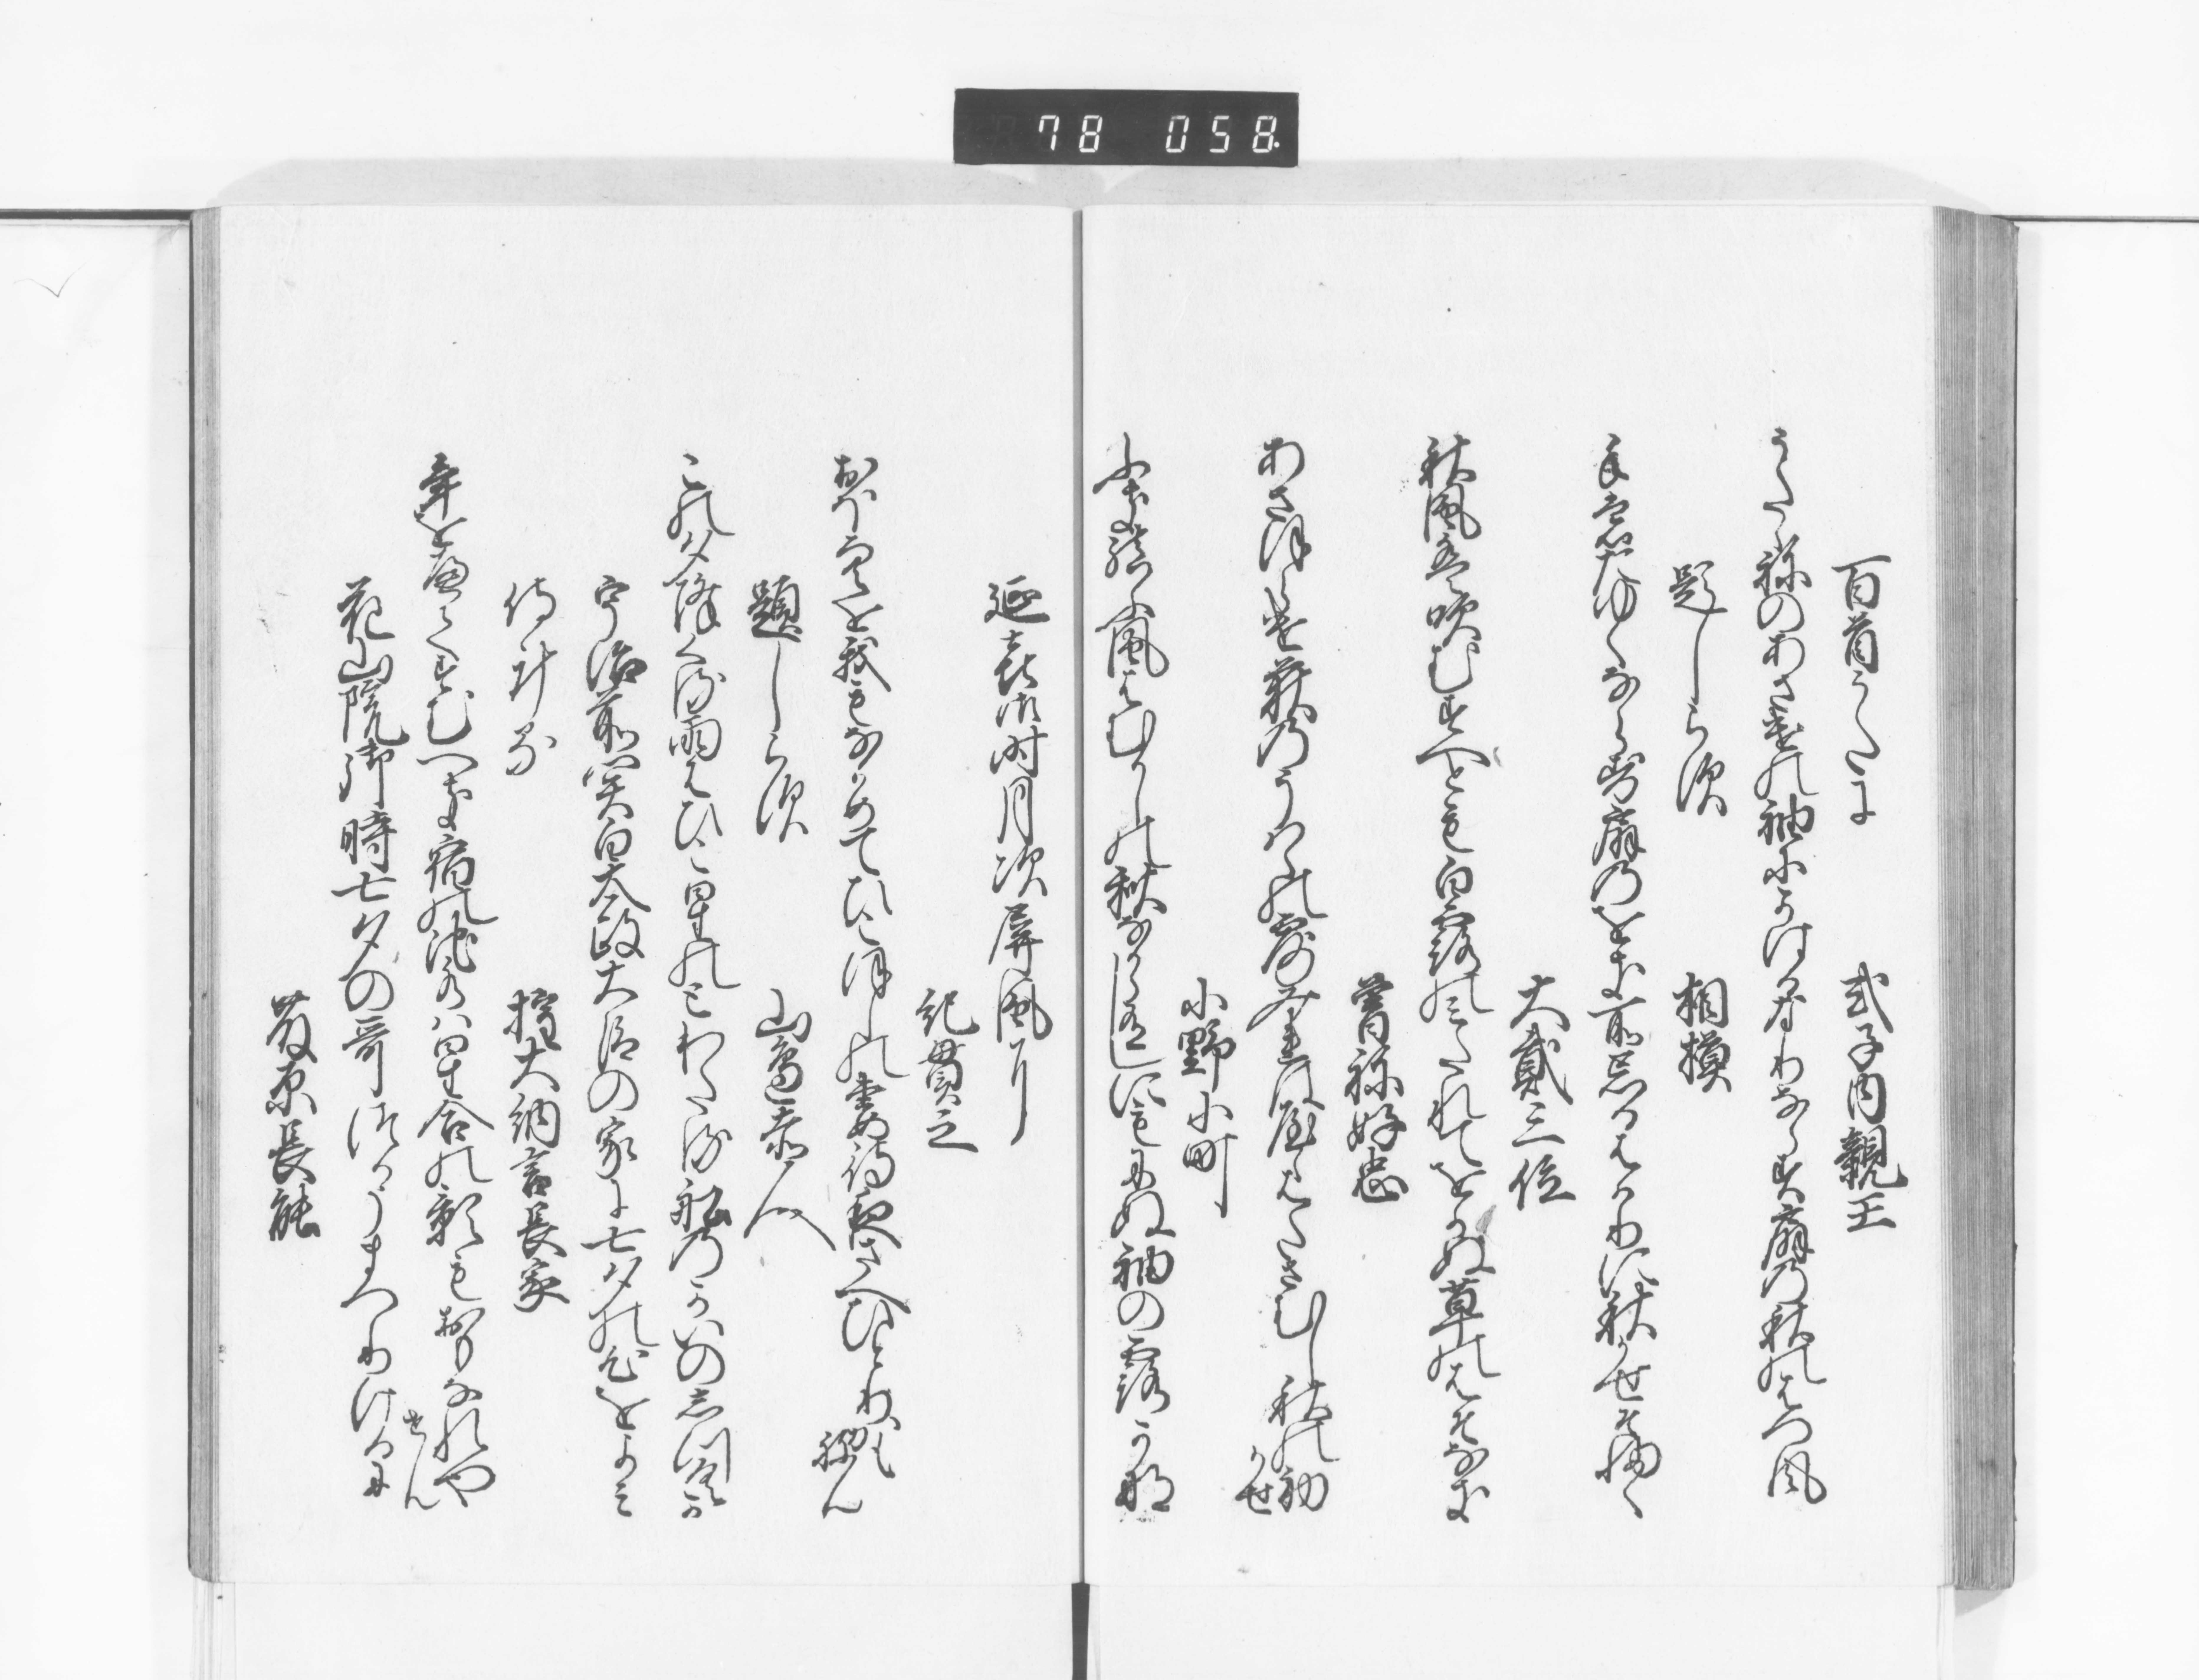 78 058
百首うたに 式子内親王
うたゝ祢のあさけの袖にかはる也ならす扇の秋のはつ風
題しらす 相摸
手もたゆくならす扇のをき所忘るはかりに秋かせそ吹
大貳三位
秋風は吹むすへとも白露のみたれてをかぬ草のはそなき
曽祢好忠
あさほらけ荻のうは葉の露みれはやゝはたさむし秋の初
かせ
小野小町
吹結ふ風はむかしの秋なからありしにもにぬ袖の露かな
延喜御時月次屏風に
紀貫之
おほ空を我もなかめてひこほしの妻待夜さへひとりかも
祢ん
題しらす 山邊赤人
この夕降くる雨はひこ星のとわたる船のかいのしつくか
宇治前関白太政大臣の家に七夕の心をよみ
侍計る 権大納言長家
年をへてすむへき宿の池水は星合の影もおもなれや
せん
花山院御時七夕の哥つかうまつりけるに
藤原長能